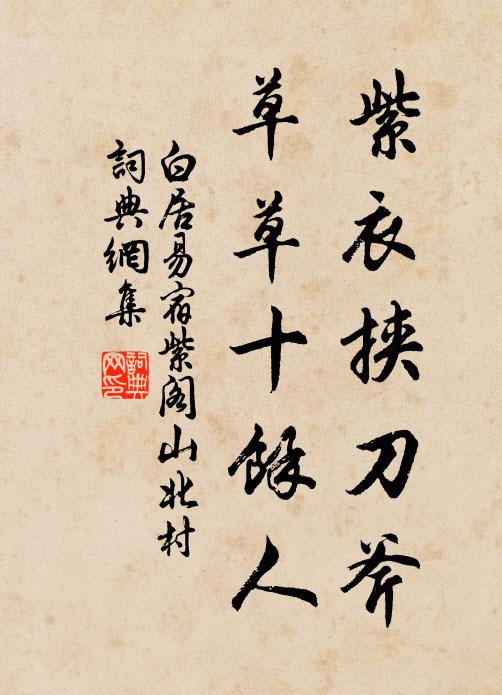 紫衣挟刀斧
草草十餘人
白居易宿紫阁山北村
詞典網集
詞典网印